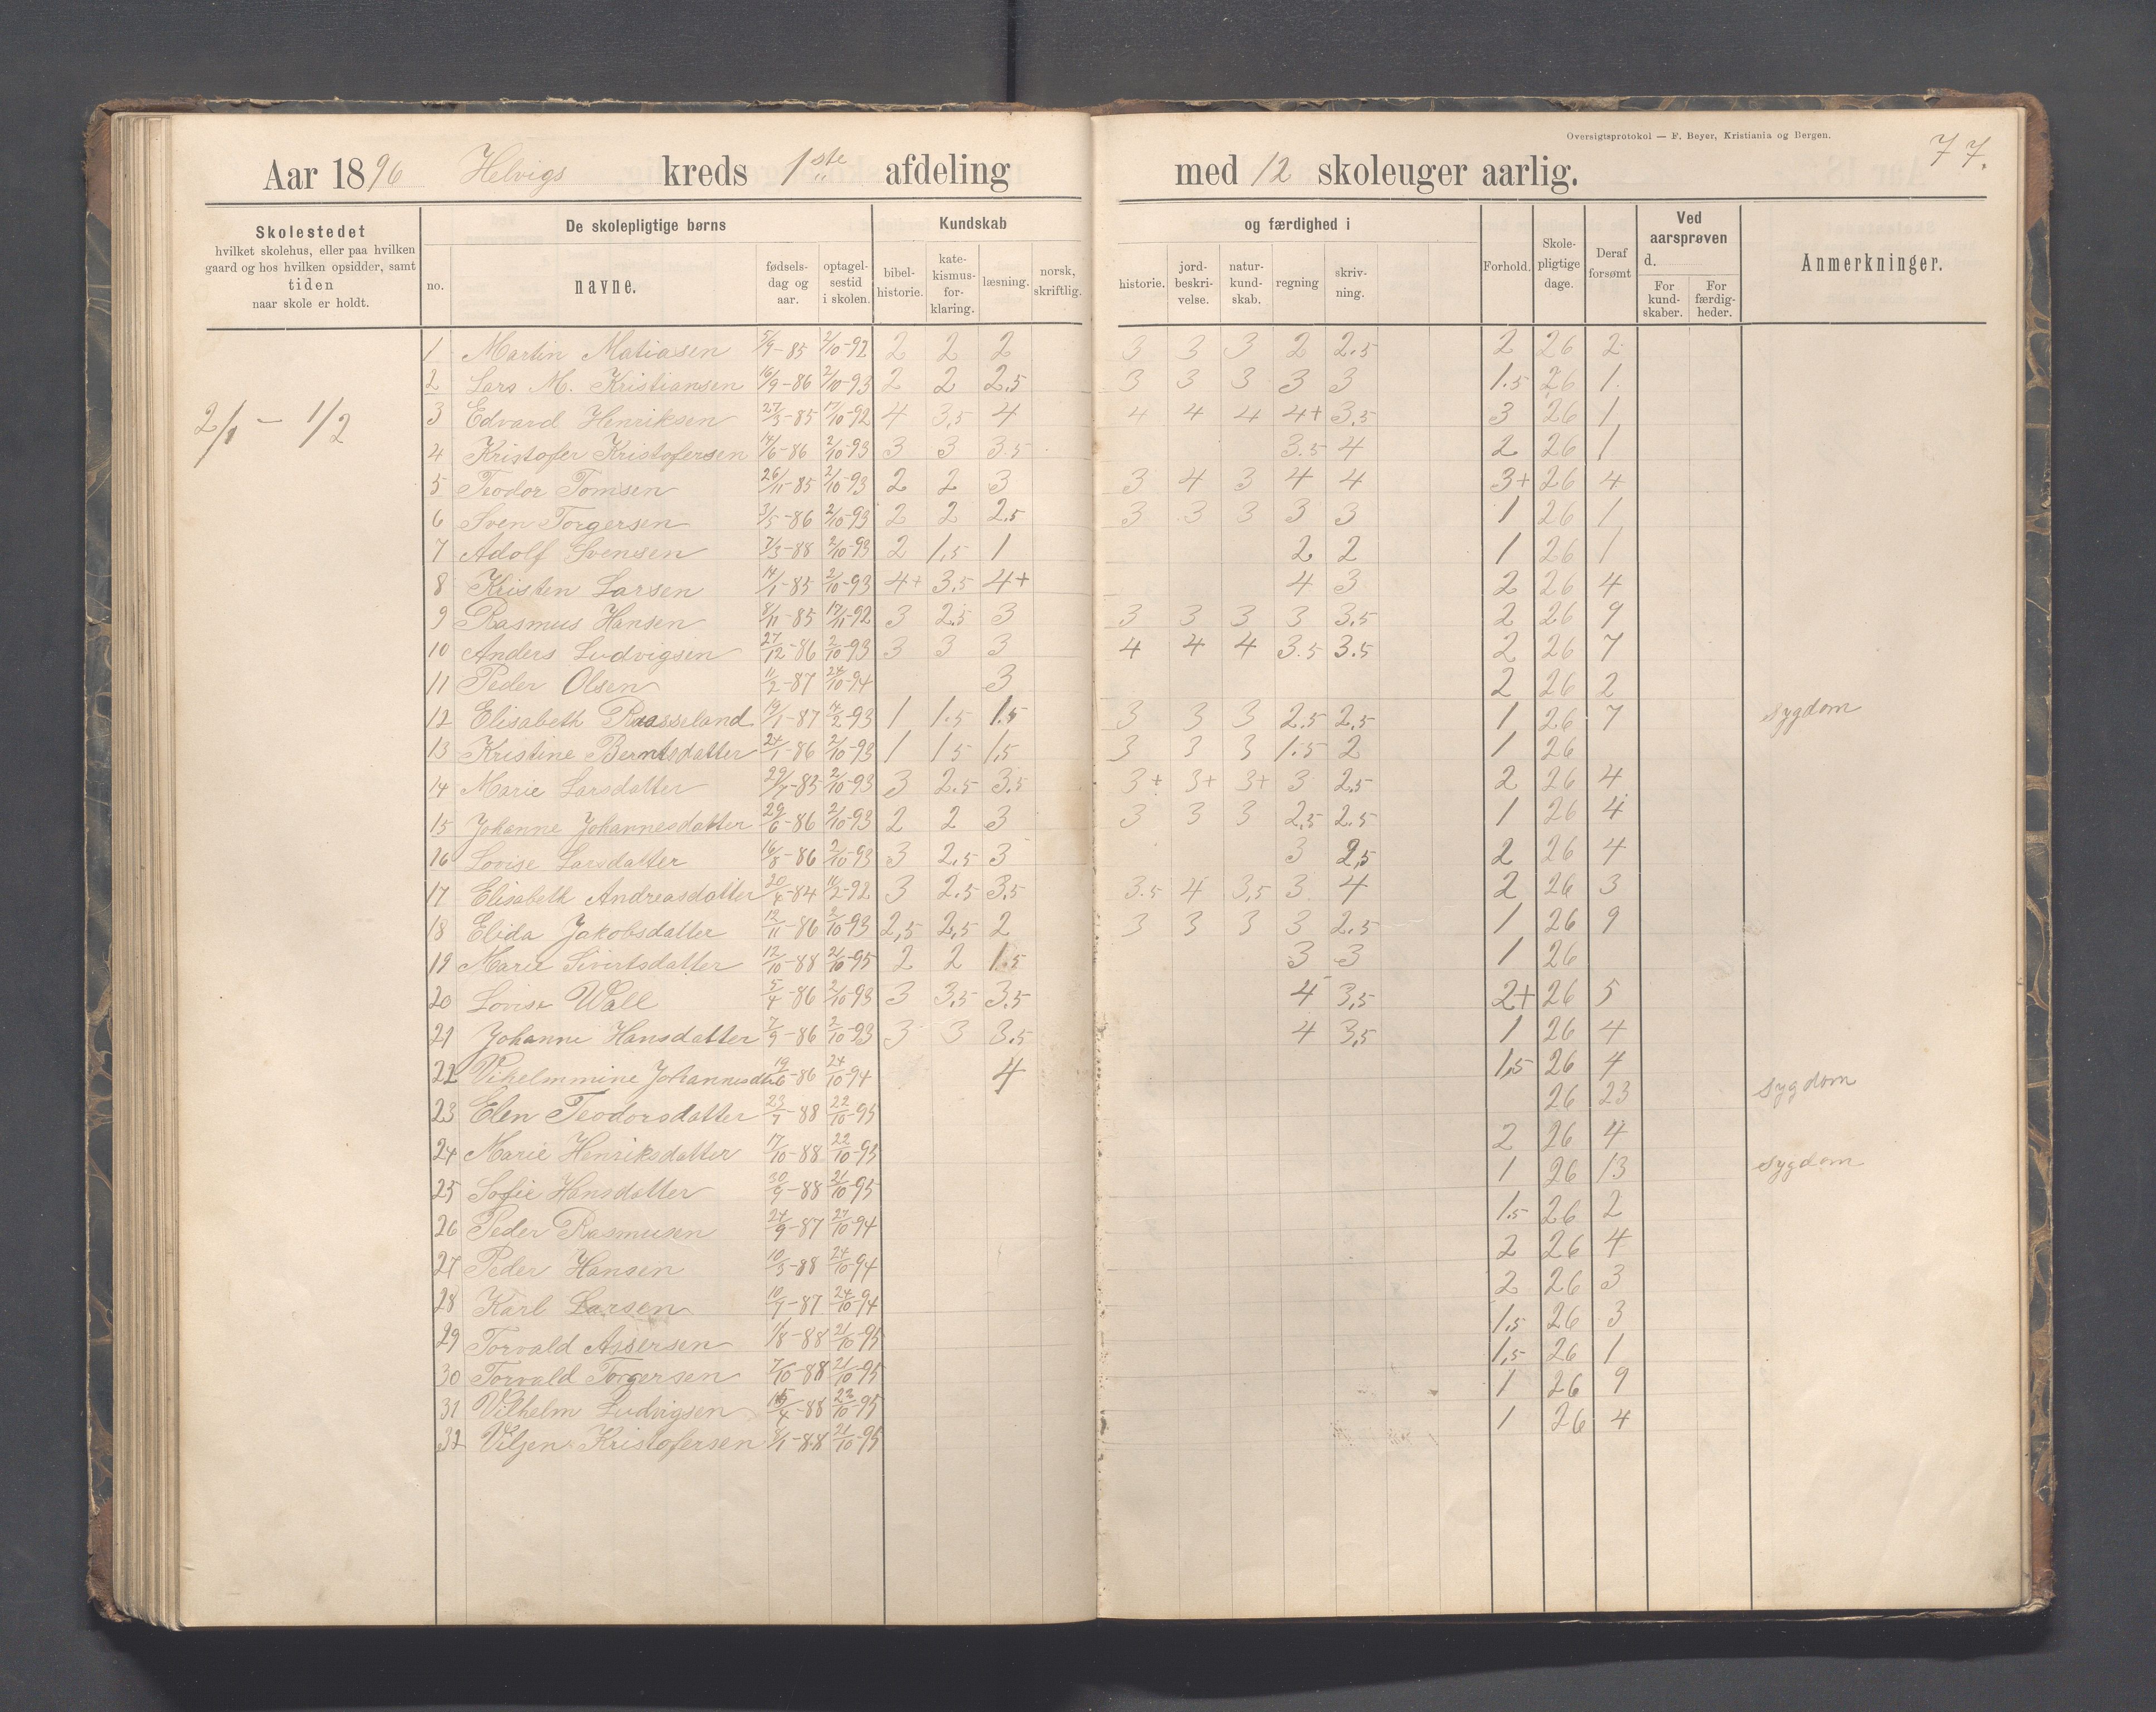 Oversigtsprotokol — F. Beyer, Kristiania og Bergen.
77.
Aar 1896 Helvigs kreds 1ste afdeling med 12 skoleuger aarlig.
Skolestedet
hvilket skolehus, eller paa hvilken
gaard og hos hvilken opsidder, samt
tiden
naar skole er holdt.
De skolepligtige børns
no.
navne.
fødsels-
dag og
aar.
optagel-
sestid
i skolen.
Kundskab
bibel-
historie.
kate-
kismus-
for-
klaring.
læsning.
norsk,
skriftlig.
og færdighed i
historie.
jord-
beskri-
velse.
natur-
kund-
skab.
regning
skriv-
ning.
Forhold.
Skole-
pligtige
dage.
Deraf
forsømt
Ved
aarsprøven
d.
For
kund-
skaber.
For
færdig-
heder.
Anmerkninger.
2/1 - 1/2
1 Martin Matiasen 5/9-85 2/10-92 2 2 2 3 3 3 2 2.5 2 26 2
2 Lars M. Kristiansen 16/9-86 2/10-93 2 2 2.5 3 3 3 3 3 1.5 26 1
3 Edvard Henriksen 27/3-85 17/10-92 4 3,5 4 4 4 4 4+ 3,5 3 26 1
4 Kristofer Kristofersen 14/6-86 2/10-93 3 3 3.5 3.5 4 2 26 1
5 Teodor Tomsen 26/11-85 2/10-93 2 2 3 3 4 3 4 4 3+ 26 4
6 Sven Torgersen 3/5-86 2/10-93 2 2 2.5 3 3 3 3 3 1 26 1
7 Adolf Svensen 7/3-88 2/10-93 2 1,5 1 2 2 1 26 1
8 Kristen Larsen 14/1-85 2/10-93 4+ 3,5 4+ 4 3 2 26 4
9 Rasmus Hansen 8/11-85 17/11-92 3 2.5 3 3 3 3 3 3.5 2 26 9
10 Anders Ludvigsen 27/12-86 2/10-93 3 3 3 4 4 4 3.5 3.5 2 26 7
11 Peder Olsen 11/2-87 24/10-94 3 2 26 2
12 Elisabeth Raasseland 19/1-87 14/2-93 1 1.5 1.5 3 3 3 2.5 2.5 1 26 7 sygdom
13 Kristine Berntsdatter 24/1-86 2/10-93 1 1 5 1,5 3 3 3 1.5 2 1 26
14 Marie Larsdatter 29/7-83 2/10-93 3 2.5 3.5 3+ 3+ 3+ 3 2.5 2 26 4
15 Johanne Johannesdatter 29/6-86 2/10-93 2 2 3 3 3 3 2,5 2.5 1 26 4
16 Lovise Larsdatter 16/8-86 2/10-93 3 2,5 3 3 2,5 2 26 4
17 Elisabeth Andreasdatter 20/4-84 11/2-92 3 2.5 3.5 3.5 4 3,5 3 4 2 26 3
18 Elida Jakobsdatter 12/11-86 2/10-93 2,5 2,5 2 3 3 3 3 2.5 1 26 9
19 Marie Sivertsdatter 12/10-88 21/10-95 2 2 1.5 3 3 1 26
20 Lovise Wall 5/4-86 2/10-93 3 3,5 3.5 4 3,5 2+ 26 5
21 Johanne Hansdatter 7/9-86 2/10-93 3 3 3.5 4 3,5 1 26 4
22 Vihelmmine Johannesdtr 19/6-86 24/10-94 4 1,5 26 4
23 Elen Teodorsdatter 23/7-88 22/10-95 26 23 sygdom
24 Marie Henriksdatter 17/10-88 22/10-95 2 26 4
25 Sofie Hansdatter 30/9-88 21/10-95 1 26 13 sygdom
26 Peder Rasmusen 24/9-87 27/10-94 1.5 26 2
27 Peder Hansen 10/3-88 24/10-94 2 26 4
28 Karl Larsen 10/7-87 24/10-94 2 26 3
29 Torvald Assersen 1/8-88 21/10-95 1,5 26 3
30 Torvald Torgersen 7/10-88 21/10-95 1,5 26 1
31 Vilhelm Ludvigsen 15/4-88 22/10-95 1 26 9
32 Viljen Kristofersen 8/1-88 21/10-95 1 26 4